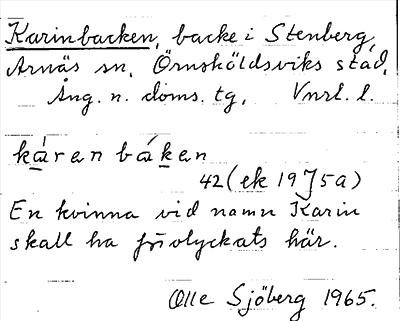 Karinbacken, backe i Stenberg,
Arnäs sn, Örnsköldsviks stad,
Ång. n. doms. tg, Vnrl. l.
káren báken
42 (ek 1975a)
En kvinna vid namn Karin
skall ha förolyckats här.
Olle Sjöberg 1965.